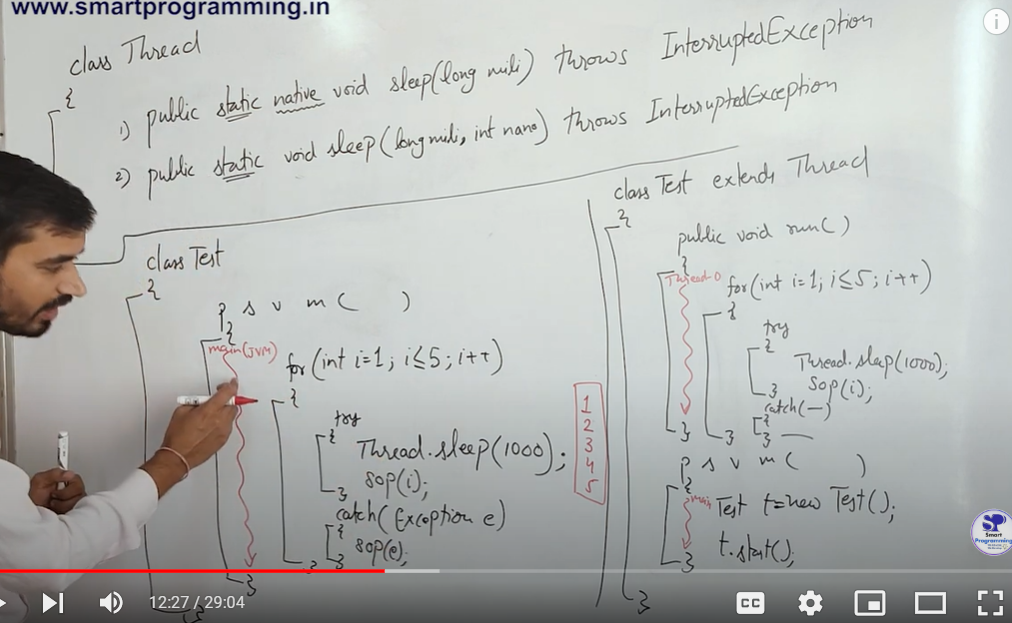 www.smartprogramming.in
class Thread
{
1) public static native void sleep(long mili) throws InterruptedException
2) public static void sleep(long mili, int nano) throws InterruptedException
class Test
{
p s v m ( )
{
main(JVM)
for(int i=1; i≤5; i++)
{
try
{
Thread.sleep(1000);
sop(i);
}
catch(Exception e)
{
sop(e);
}
}
}
}
1
2
3
4
5
class Test extends Thread
{
public void run( )
{
Thread-0
for(int i=1; i≤5; i++)
{
try
{
Thread.sleep(1000);
sop(i);
}
catch(—)
{
}
}
}
p s v m ( )
{
main
Test t=new Test();
t.start();
}
}
SP
Smart
Programming
12:27 / 29:04
CC
i